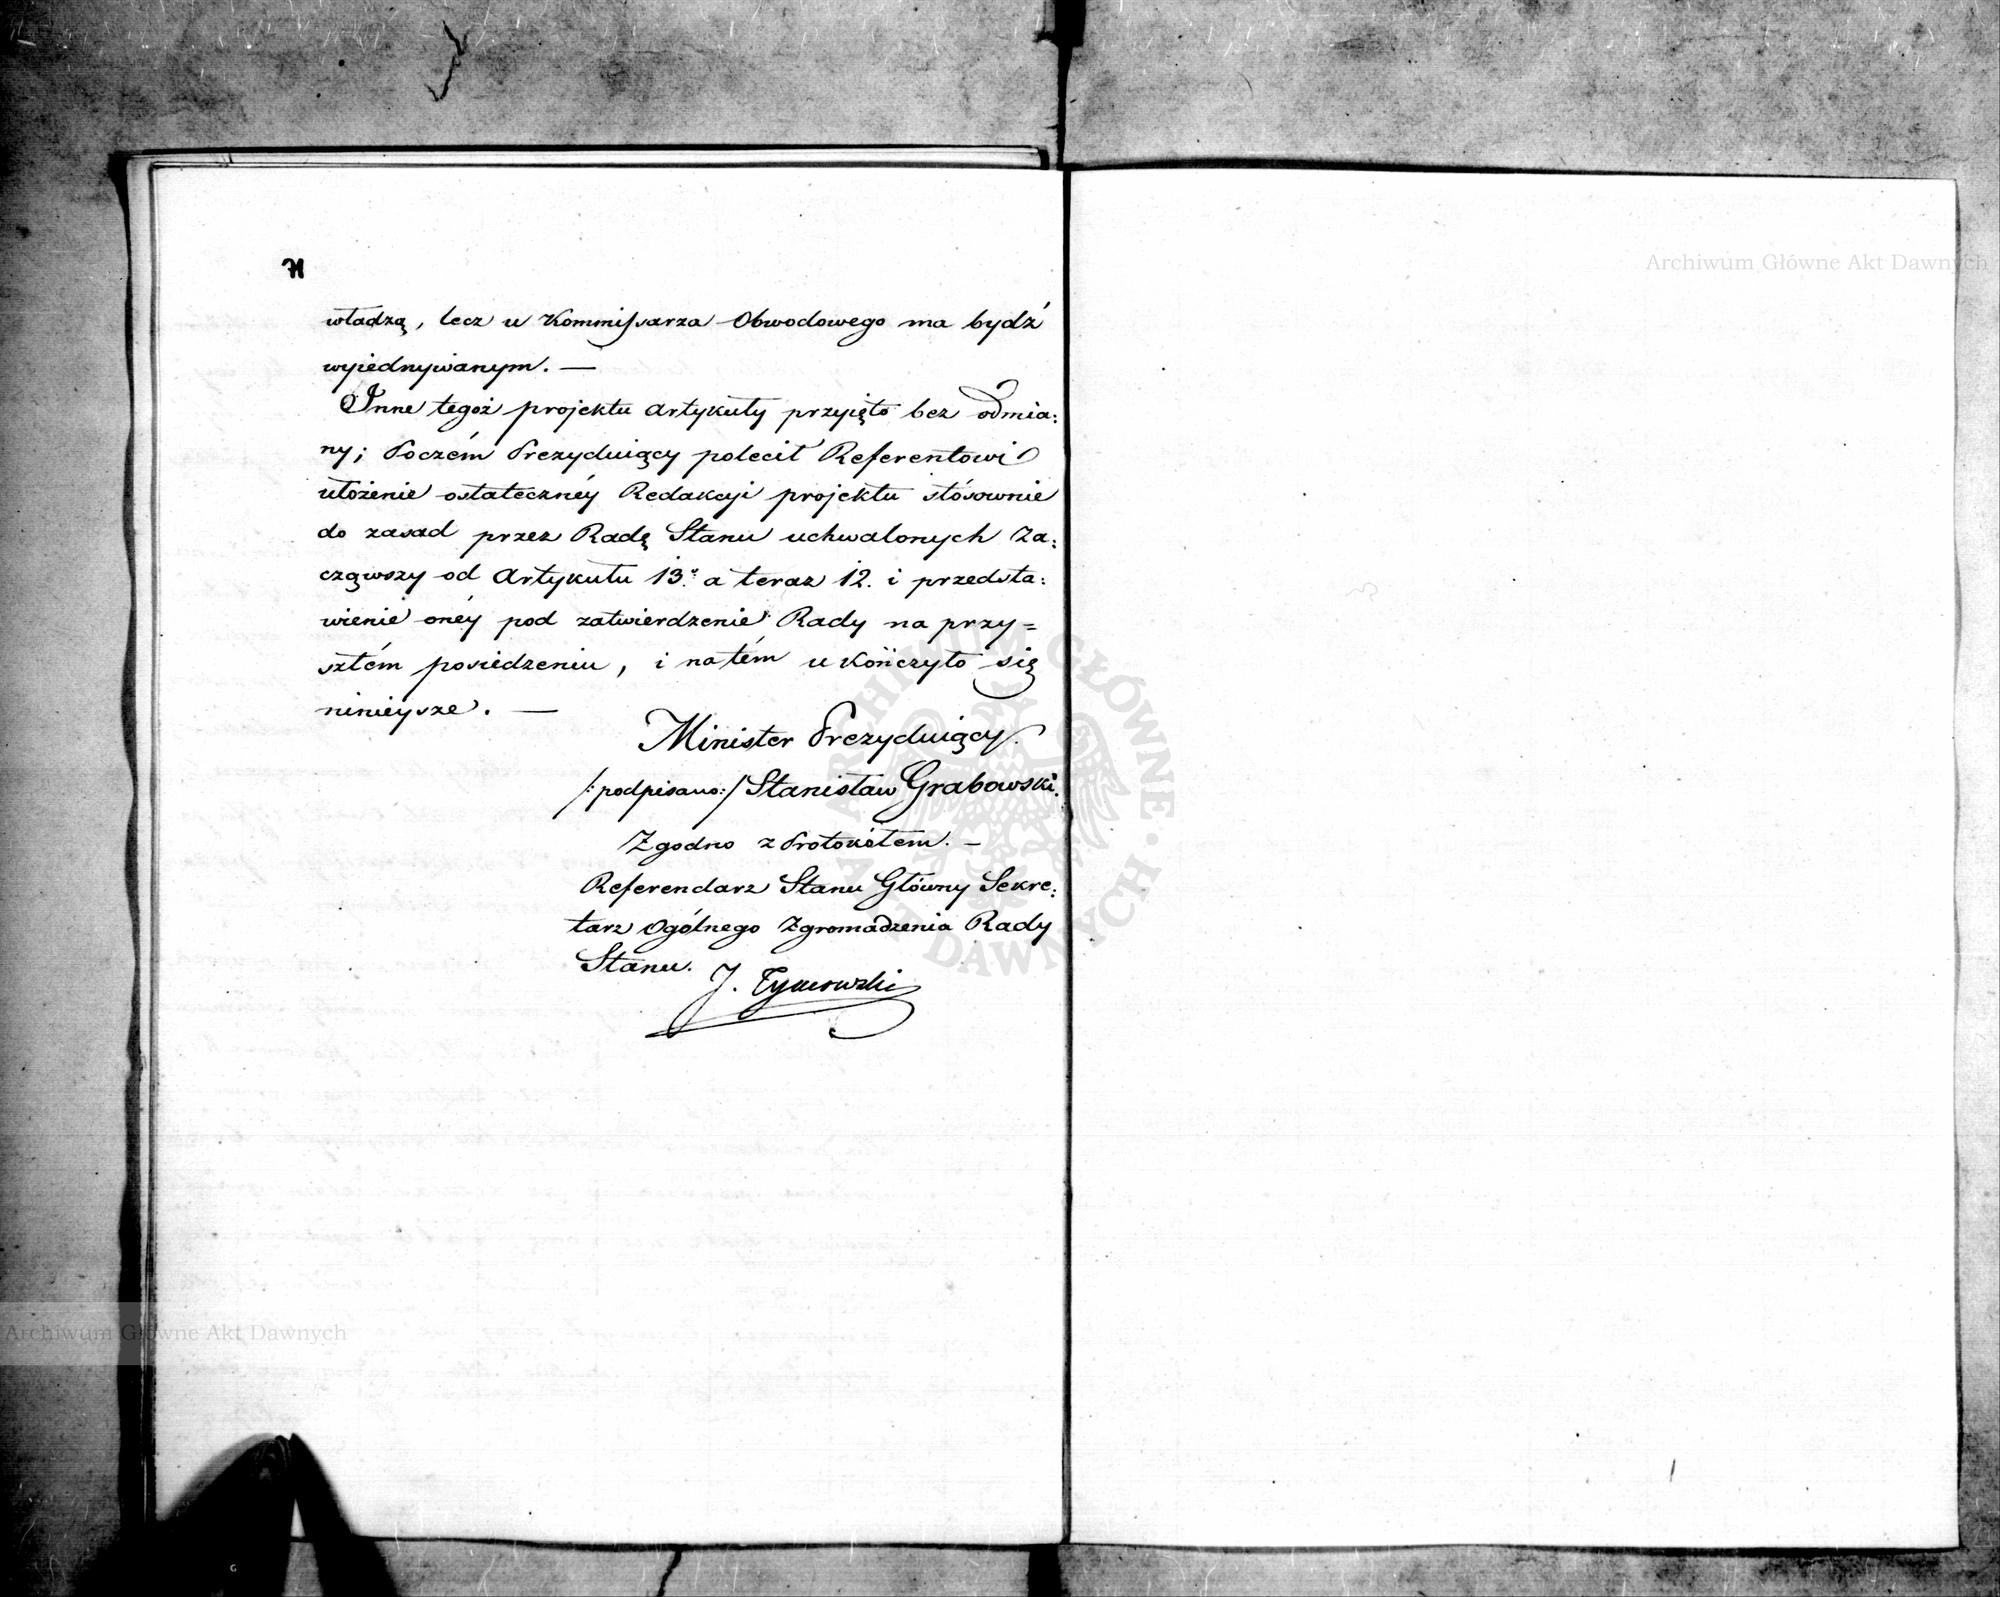 władzą, lecz u Kommissarza Obwodowego ma bydź
wyiednywanym. —
Inne tegoż projektu artykuły przyięto bez odmia:
ny; Poczém Prezyduiący polecił Referentowi
ułożenie ostatecznéy Redakcyi projektu stósownie
do zasad przez Radę Stanu uchwalonych Za:
cząwszy od Artykułu 13.º a teraz 12. i przedsta:
wienie onéy pod zatwierdzenie Rady na przy=
szłém posiedzeniu, i na tém ukończyło się
ninieysze. —
Minister Prezyduiący.
/:podpisano:/ Stanisław Grabowski.
Zgodno z Protokółem. —
Referendarz Stanu Główny Sekre:
tarz Ogólnego Zgromadzenia Rady
Stanu.
J. Tymowski
Archiwum Główne Akt Dawnych
Archiwum Główne Akt Dawnych
ARCHIWUM GŁÓWNE AKT DAWNYCH